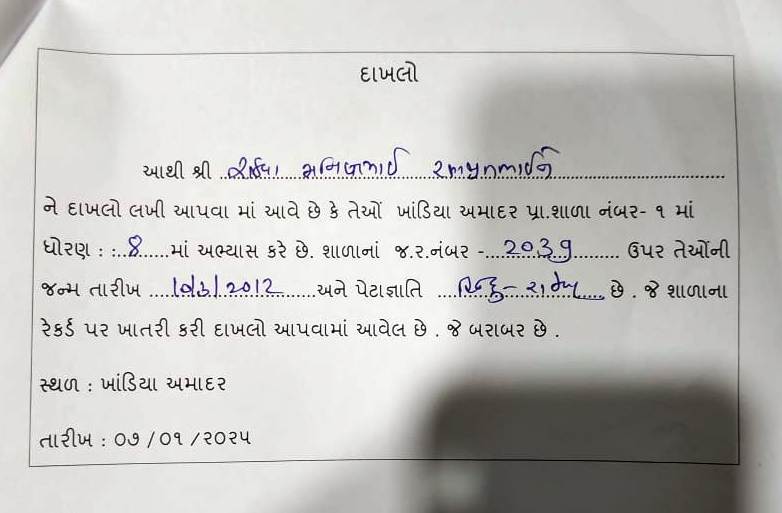 દાખલો
આથી શ્રી
ને દાખલો લખી આપવા માં આવે છે કે તેઓં ખાંડિયા અમાદર પ્રા.શાળા નંબર- ૧ માં
ધોરણ : :..8......માં અભ્યાસ કરે છે. શાળાનાં જ.ર.નંબર -...2039......... ઉપર તેઓંની
જન્મ તારીખ ......2012......અને પેટાજ્ઞાતિ ...હિન્દુ-.... છે . જે શાળાના
રેકર્ડ પર ખાતરી કરી દાખલો આપવામાં આવેલ છે . જે બરાબર છે .
સ્થળ : ખાંડિયા અમાદર
તારીખ : ૦૭ /૦૧ /૨૦૨૫